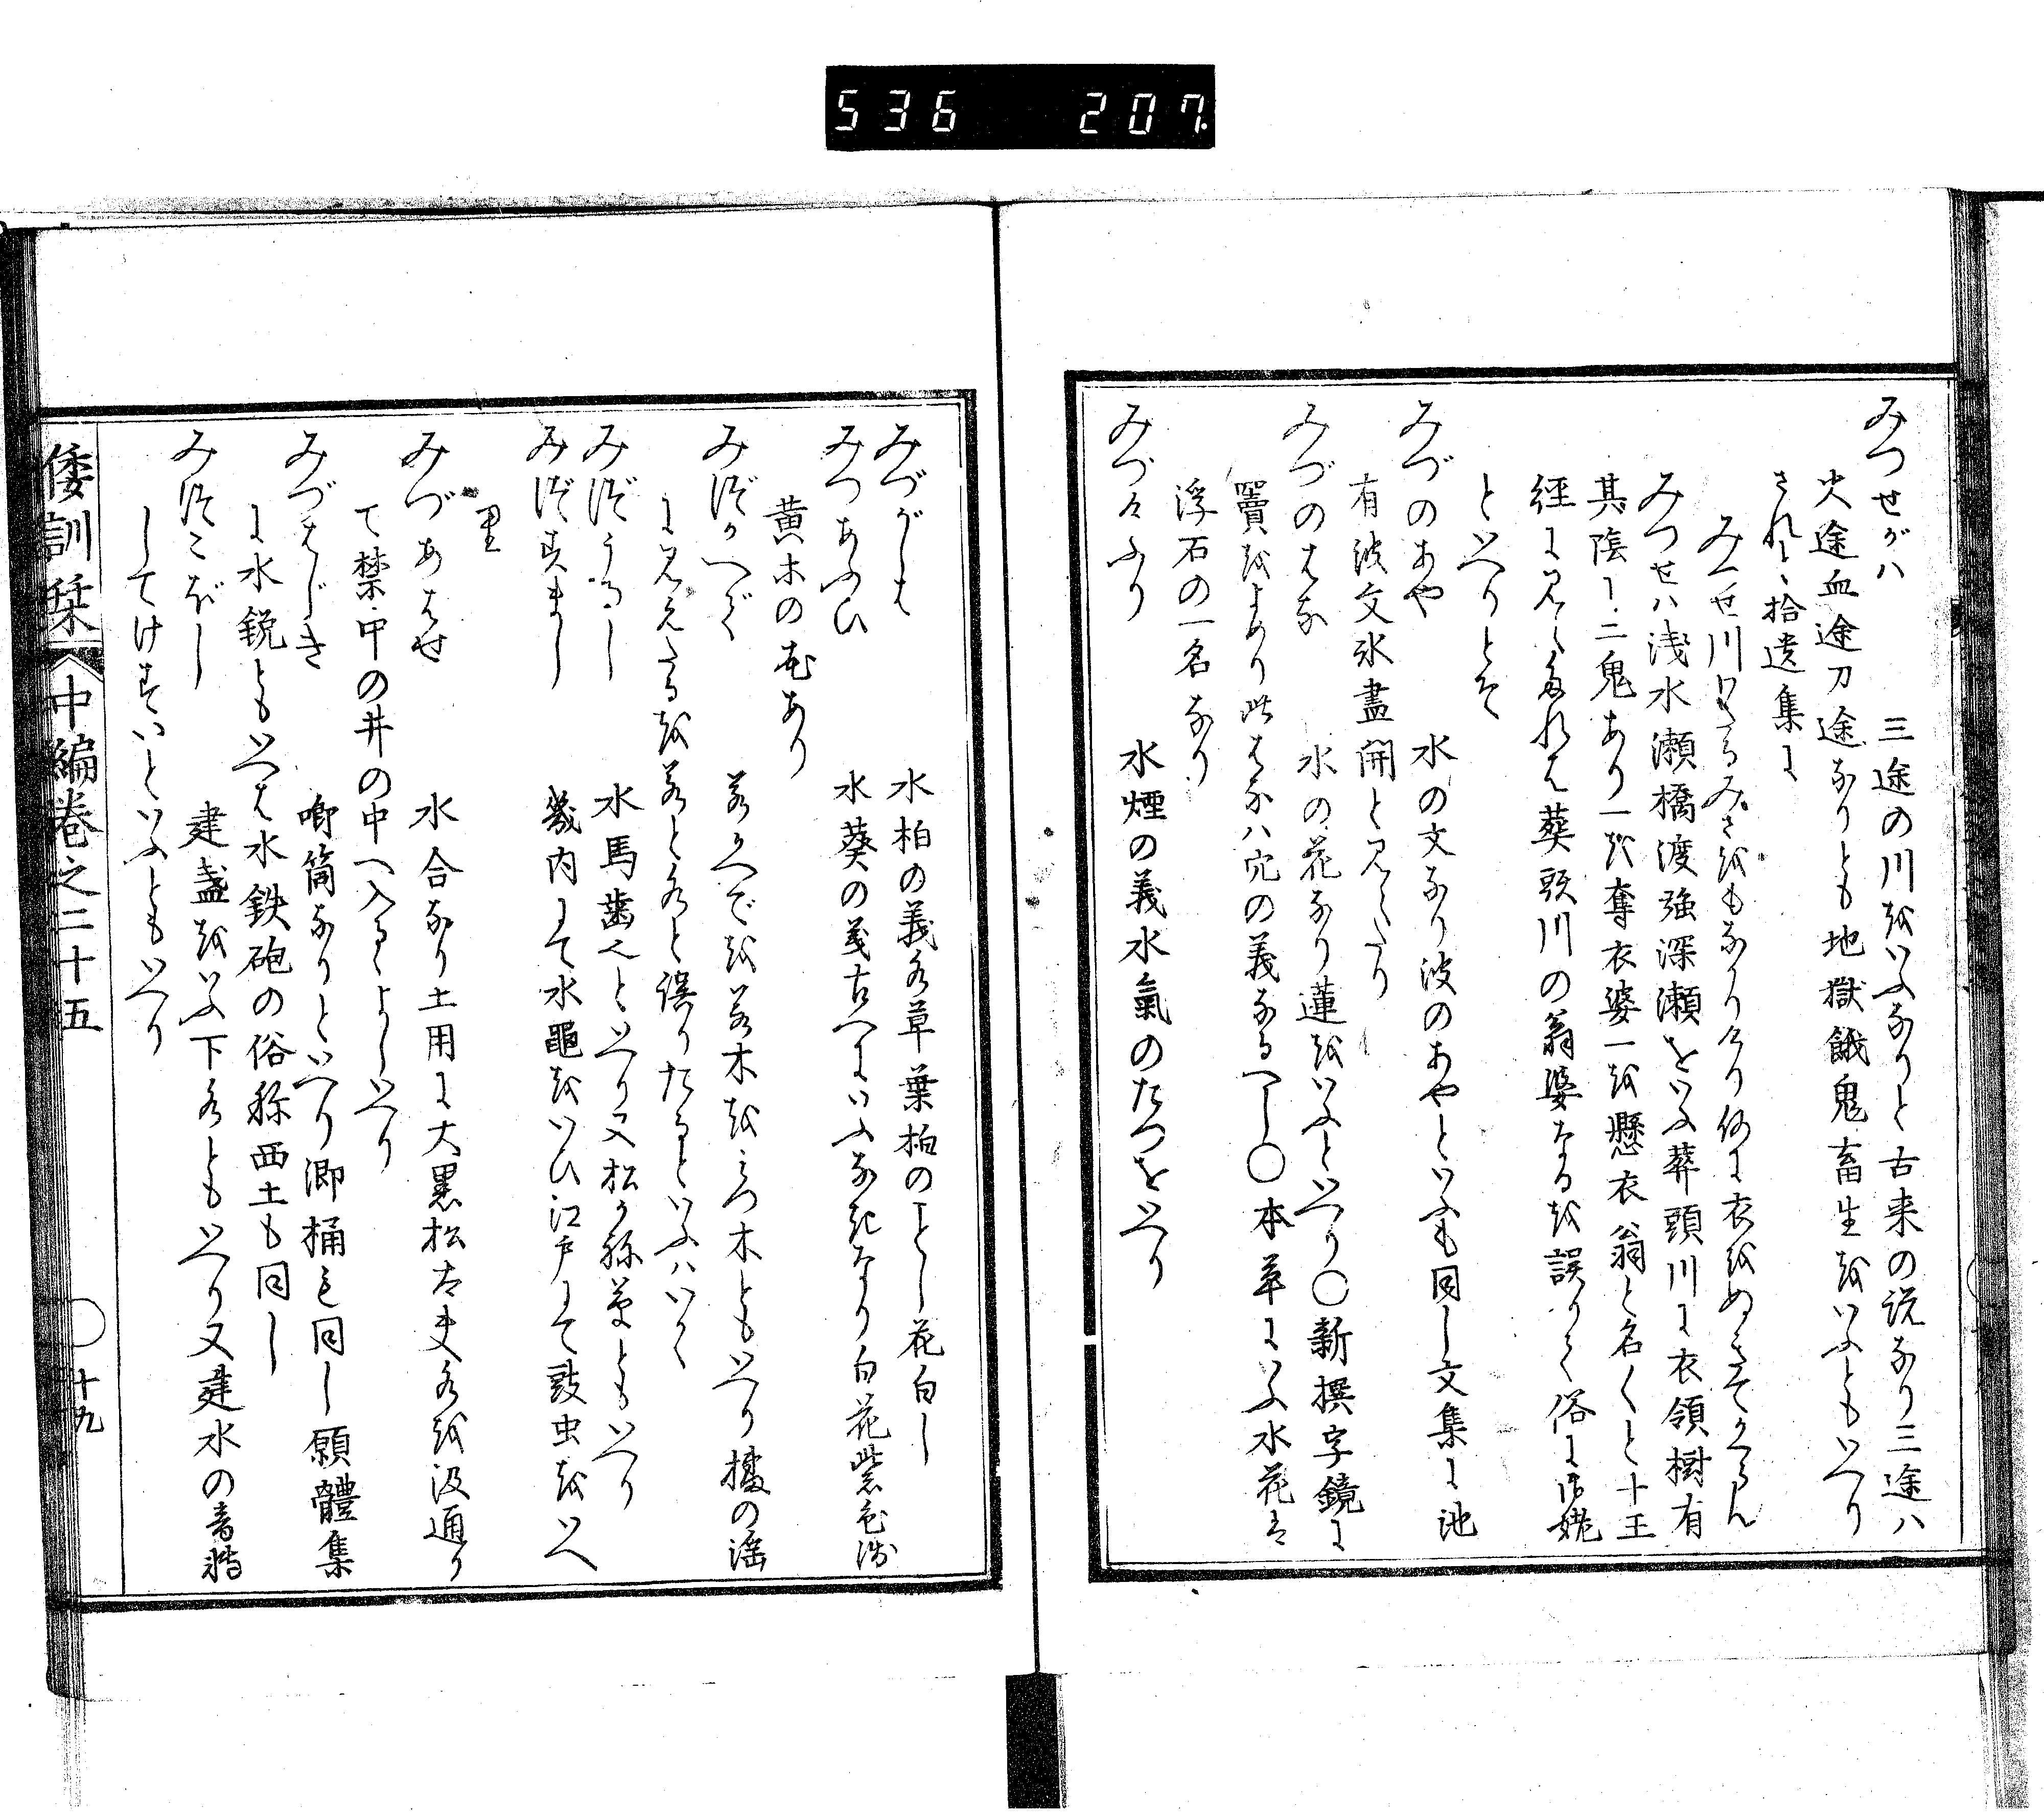 536 207
みつせがハ 三途の川をいふなりと古来の説なり三途ハ
火途血途刀途なりとも地獄餓鬼畜生をいふともいへり
されと拾遺集に
みつせ川わたるみさをもなかりけり何に衣をぬきてかくらん
みつせハ浅水瀬橋渡強深瀬をいふ葬頭川に衣領樹有
其陰に二鬼あり一を奪衣婆一を懸衣翁と名くと十王
経に見ゆされは葬頭川の翁婆なるを誤りて俗に
といへりとそ
みづのあや 水の文なり波のあやといふも同し文集に池
有波文氷盡開と見えたり
みづのはな 水の花なり蓮をいふといへり○新撰字鏡に
をよめり此はなハ穴の義なるへし○本草にいふ水花は
浮石の一名なり
みづけふり 水煙の義水氣のたつをいへり
みづがしは 水柏の義名草葉柏のことし花白し
みつあふひ 水葵の義古へにいふなきなり白花紫色
黄木の花あり
みづかへで 若かへでを若木をみつ木ともいへり の謡
に見えたるを若と名と誤りたるといふハいかゝ
みづうるし 水馬歯也といへり又松か ともいへり
みづすまし 畿内にて水黽をいひ江戸にて鼓虫をいへ
里
みづあはせ 水合なり土用に大黒松太夫名を汲通り
て禁中の井の中へ入るゝよしいへり
みづはじき 喞筒なりといへり 桶も同し願體集
に水鋭ともいへは水鉄砲の俗称西土も同し
みづこぼし 建盞をいふ下名ともいへり又建水の音轉
してけすいといふともいへり
倭訓栞 中編巻之二十五 ○十九